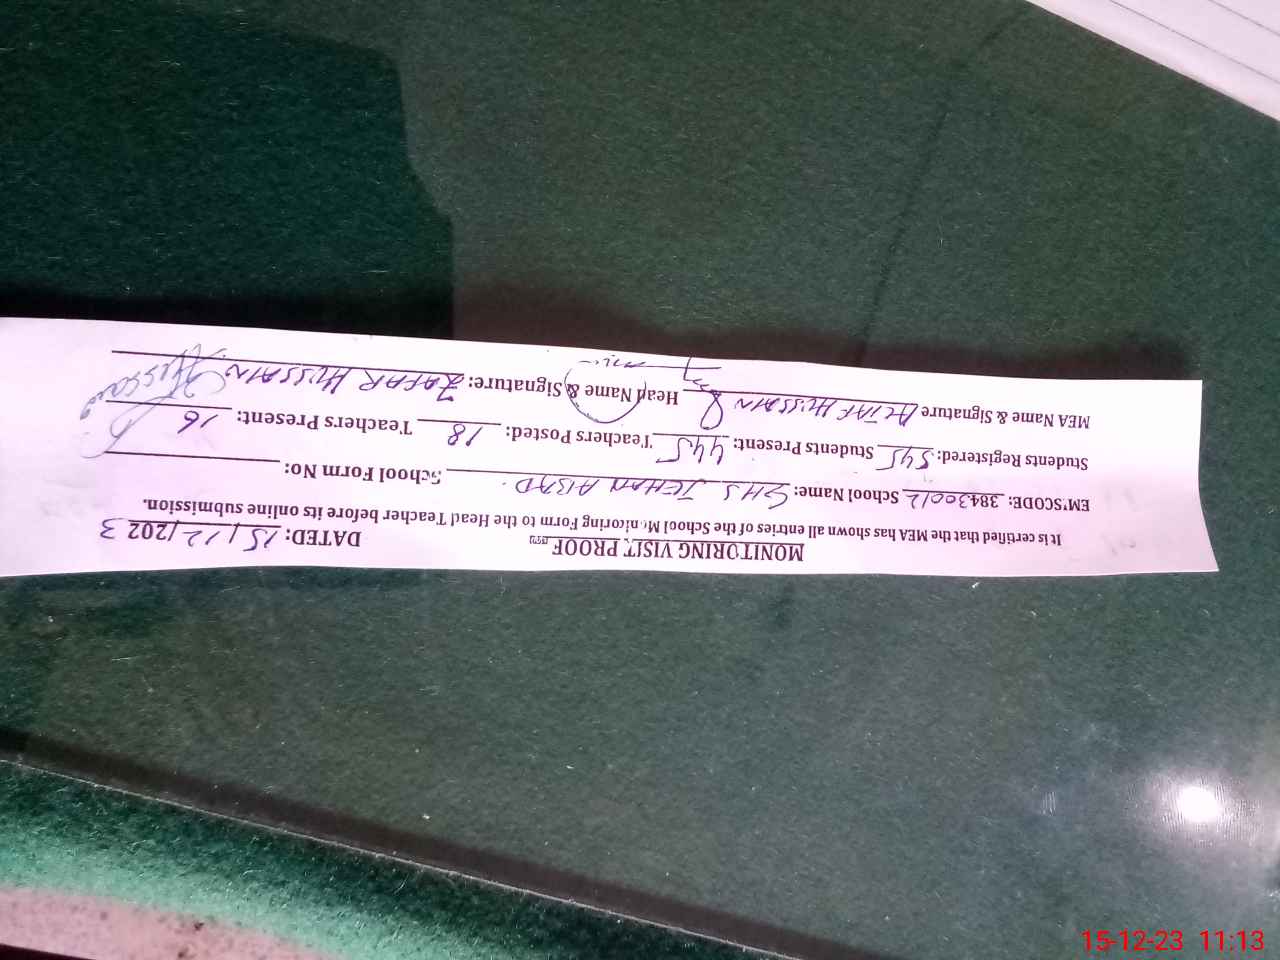 MONITORING VISIT PROOF DATED: 15/12/2023
It is certified that the MEA has shown all entries of the School Monitoring Form to the Head Teacher before its online submission.
EM'SCODE: 38430012 School Name: GHS JEHAN ABAD. School Form No:
Students Registered: 545 Students Present: 445 Teachers Posted: 18 Teachers Present: 16
MEA Name & Signature ALTAF HUSSAIN Head Name & Signature: ZAFAR HUSSAIN
15-12-23 11:13